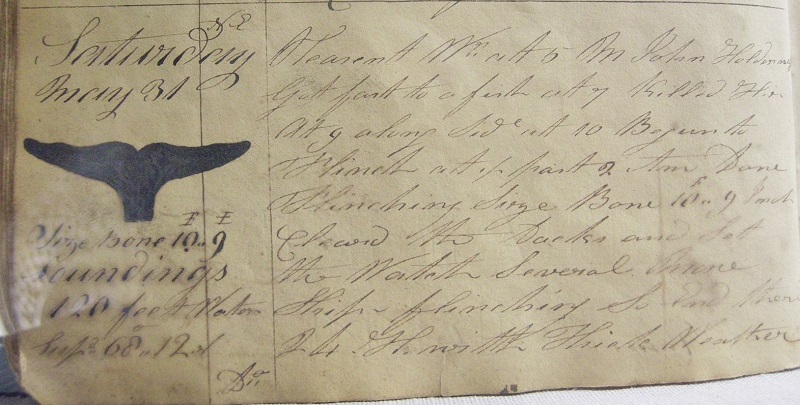 N.E
Saturday
May 31
F F
Size Bone 10 9
Soundings
120 feet Water
68 12
Do
Pleasent Wr att 5 Pm John
Got fast to a fish att 7 Killed Her
Att 9 along Side att 10 Begun to
Flinch att 1/2 past 2 Am Done
Flinching Size Bone 10 F 9 Inch
Cleard the Decks and Set
the Watch Several more
Ships flinching So End these
24 H with Thick Weather